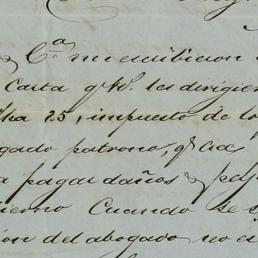 & Cª. me escribieron
Carta q. V. les dirigie
fha 25, impuesto de lo
gado patrono, q. cree
a pagar daños & perj
ierno Cuando se s
ion del abogado no es